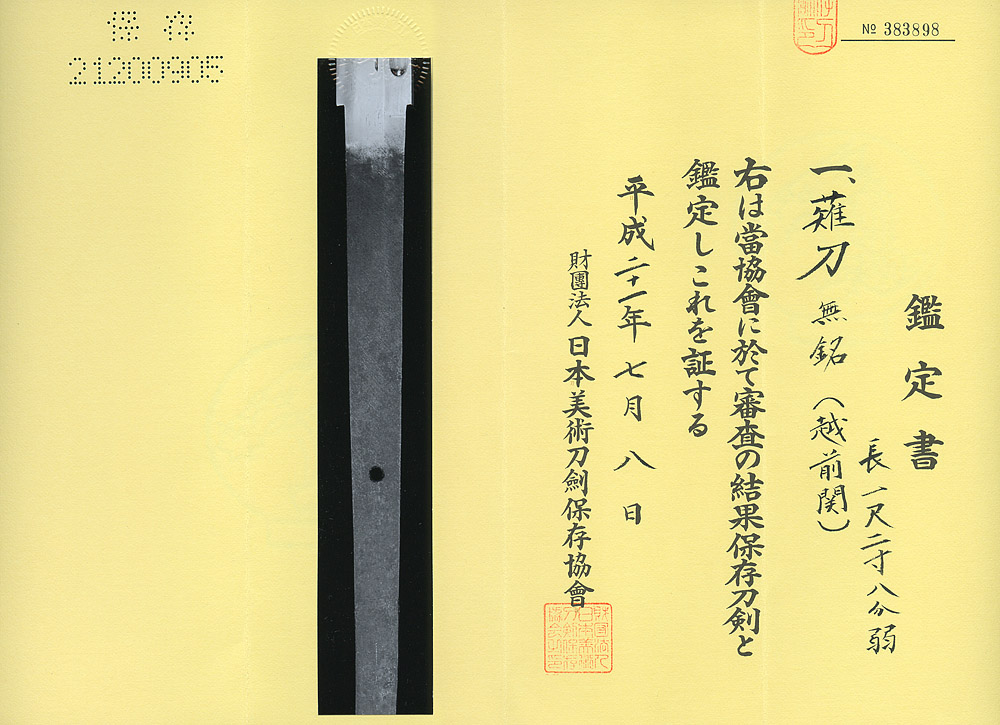 保存
21200905
№ 383898
鑑定書
長一尺二寸八分弱
一、薙刀 無銘（越前関）
右は當協會に於て審査の結果保存刀剣と
鑑定しこれを証する
平成二十一年七月八日
財團法人日本美術刀劍保存協會